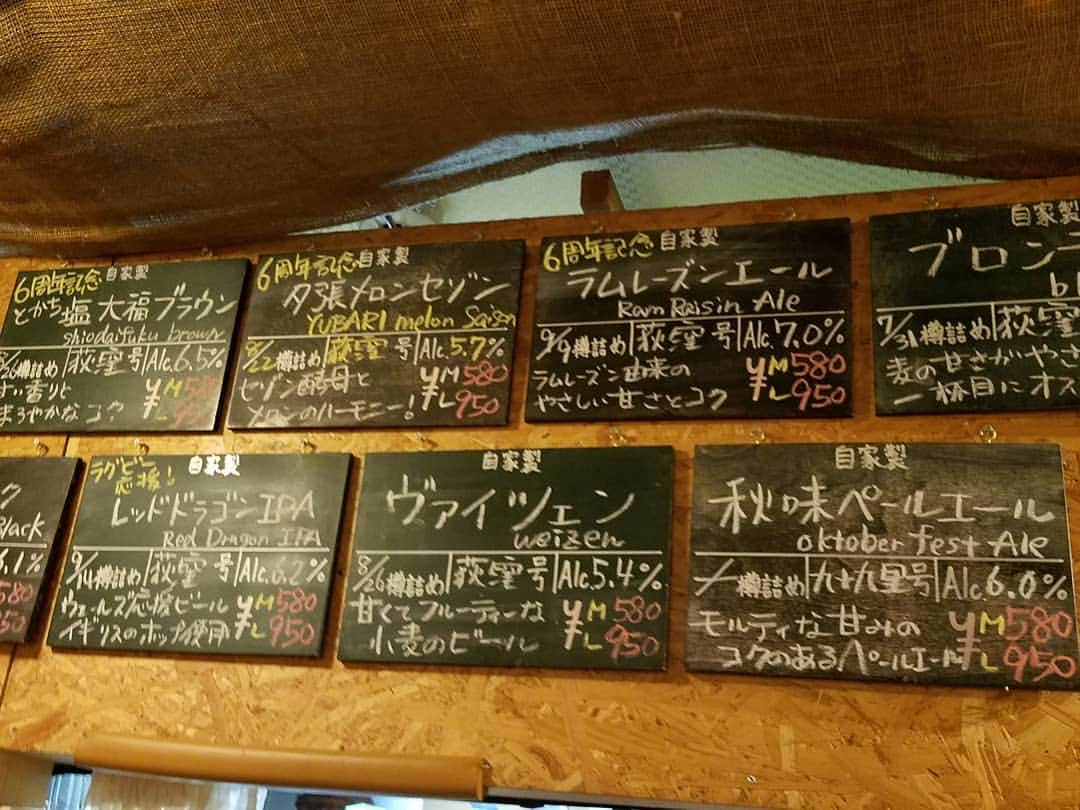 6周年記念 自家製
とかち塩大福ブラウン
shiodaifuku brown
/26樽詰め 荻窪号 Alc.6.5%
甘い香りと ¥ M 580
まろやかなコク ¥ L 950
6周年記念 自家製
夕張メロンセゾン
YUBARI melon Saison
8/22樽詰め 荻窪号 Alc.5.7%
セゾン酵母と ¥ M 580
メロンのハーモニー! ¥ L 950
6周年記念 自家製
ラムレーズンエール
Ram Raisin Ale
9/9樽詰め 荻窪号 Alc.7.0%
ラムレーズン由来の ¥ M 580
やさしい甘さとコク ¥ L 950
自家製
ブロン
bl
7/31樽詰め 荻窪
麦の甘さがやさ
一杯目にオス
ク
Black
.1%
580
950
ラグビー応援! 自家製
レッドドラゴンIPA
Red Dragon IPA
9/14樽詰め 荻窪号 Alc.6.2%
ウェールズ応援ビール ¥ M 580
イギリスのホップ使用 ¥ L 950
自家製
ヴァイツェン
weizen
8/26樽詰め 荻窪号 Alc.5.4%
甘くてフルーティーな ¥ M 580
小麦のビール ¥ L 950
自家製
秋味ペールエール
oktober fest Ale
樽詰め 九十九里号 Alc.6.0%
モルティな甘みの ¥ M 580
コクのあるペールエール ¥ L 950